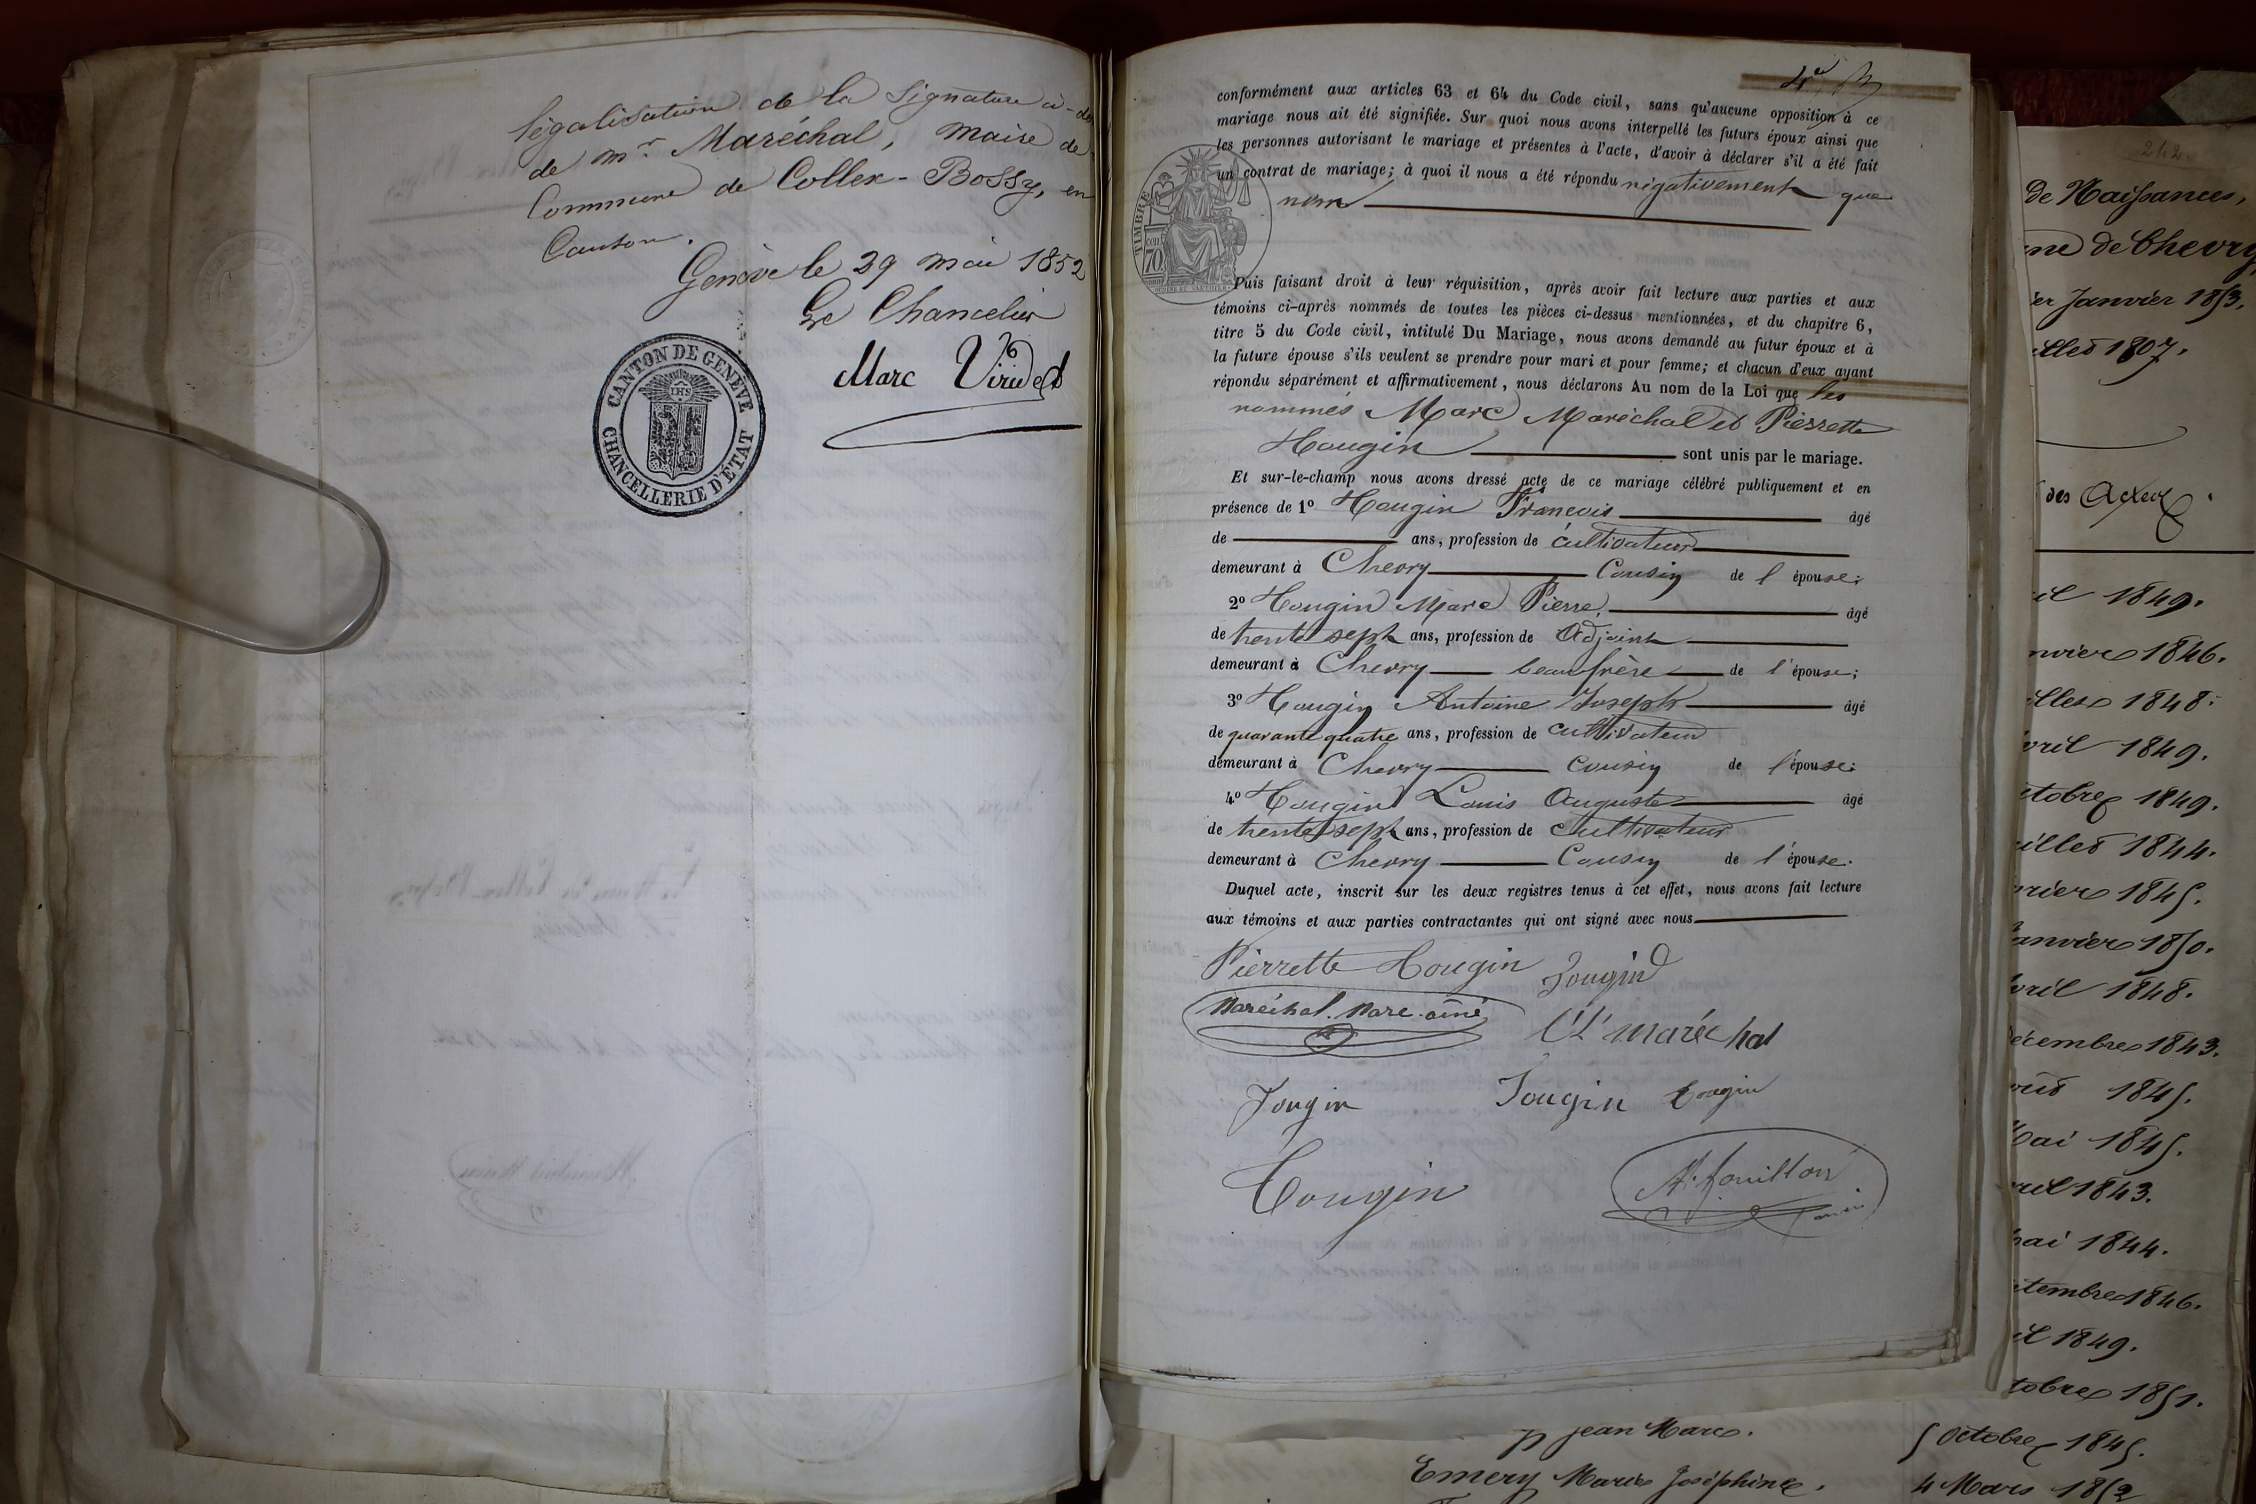 Légalisation de la signature ci-des
de mr. Maréchal, Maire de
Commune de Collex-Bossy, en
Canton.
Genève le 29 mai 1852
Le Chancelier
Marc Viridet
CANTON DE GENÈVE
CHANCELLERIE D'ÉTAT
IHS
4e
conformément aux articles 63 et 64 du Code civil, sans qu'aucune opposition à ce
mariage nous ait été signifiée. Sur quoi nous avons interpellé les futurs époux ainsi que
les personnes autorisant le mariage et présentes à l'acte, d'avoir à déclarer s'il a été fait
un contrat de mariage; à quoi il nous a été répondu négativement que
non
TIMBRE
70
Puis faisant droit à leur réquisition, après avoir fait lecture aux parties et aux
témoins ci-après nommés de toutes les pièces ci-dessus mentionnées, et du chapitre 6,
titre 5 du Code civil, intitulé Du Mariage, nous avons demandé au futur époux et à
la future épouse s'ils veulent se prendre pour mari et pour femme; et chacun d'eux ayant
répondu séparément et affirmativement, nous déclarons Au nom de la Loi que les
nommés Marc Maréchal et Pierrette
Hougin sont unis par le mariage.
Et sur-le-champ nous avons dressé acte de ce mariage célébré publiquement et en
présence de 1º Hougin François âgé
de ans, profession de cultivateur
demeurant à Chevry Cousin de l'épouse;
2º Hougin Marc Pierre âgé
de trente sept ans, profession de Adjoint
demeurant à Chevry beau frère de l'épouse;
3º Hougin Antoine Joseph âgé
de quarante quatre ans, profession de cultivateur
demeurant à Chevry Cousin de l'épouse;
4º Hougin Louis Auguste âgé
de trente sept ans, profession de Cultivateur
demeurant à Chevry Cousin de l'épouse.
Duquel acte, inscrit sur les deux registres tenus à cet effet, nous avons fait lecture
aux témoins et aux parties contractantes qui ont signé avec nous
Pierrette Hougin Jougin
Maréchal. Marc. ainé
maréchal
Jougin Jougin Hougin
Hougin
242
de Naissances,
ne de Chevry
er Janvier 1853,
illet 1807.
des Actes
il 1849.
nvier 1846.
illet 1848.
vril 1849.
ctobre 1849.
uillet 1844.
vrier 1845.
Janvier 1850.
vril 1848.
écembre 1843.
oût 1845.
Mai 1845.
vril 1843.
mai 1844.
tembre 1846.
il 1849.
tobre 1851.
Jean Marc. 5 Octobre 1845.
Emery Marie Joséphine. 4 Mars 1852